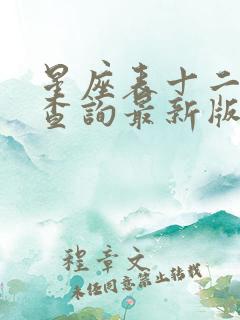 星座表十二
查詢最新版
程章文
未经同意禁止转载